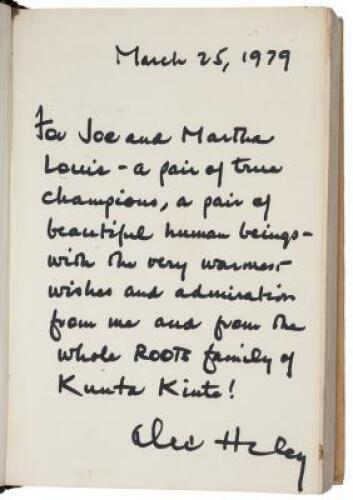 March 25, 1979
For Joe and Martha
Louis - a pair of true
champions, a pair of
beautiful human beings -
with the very warmest
wishes and admiration
from me and from the
whole ROOTS family of
Kunta Kinte!
Alex Haley